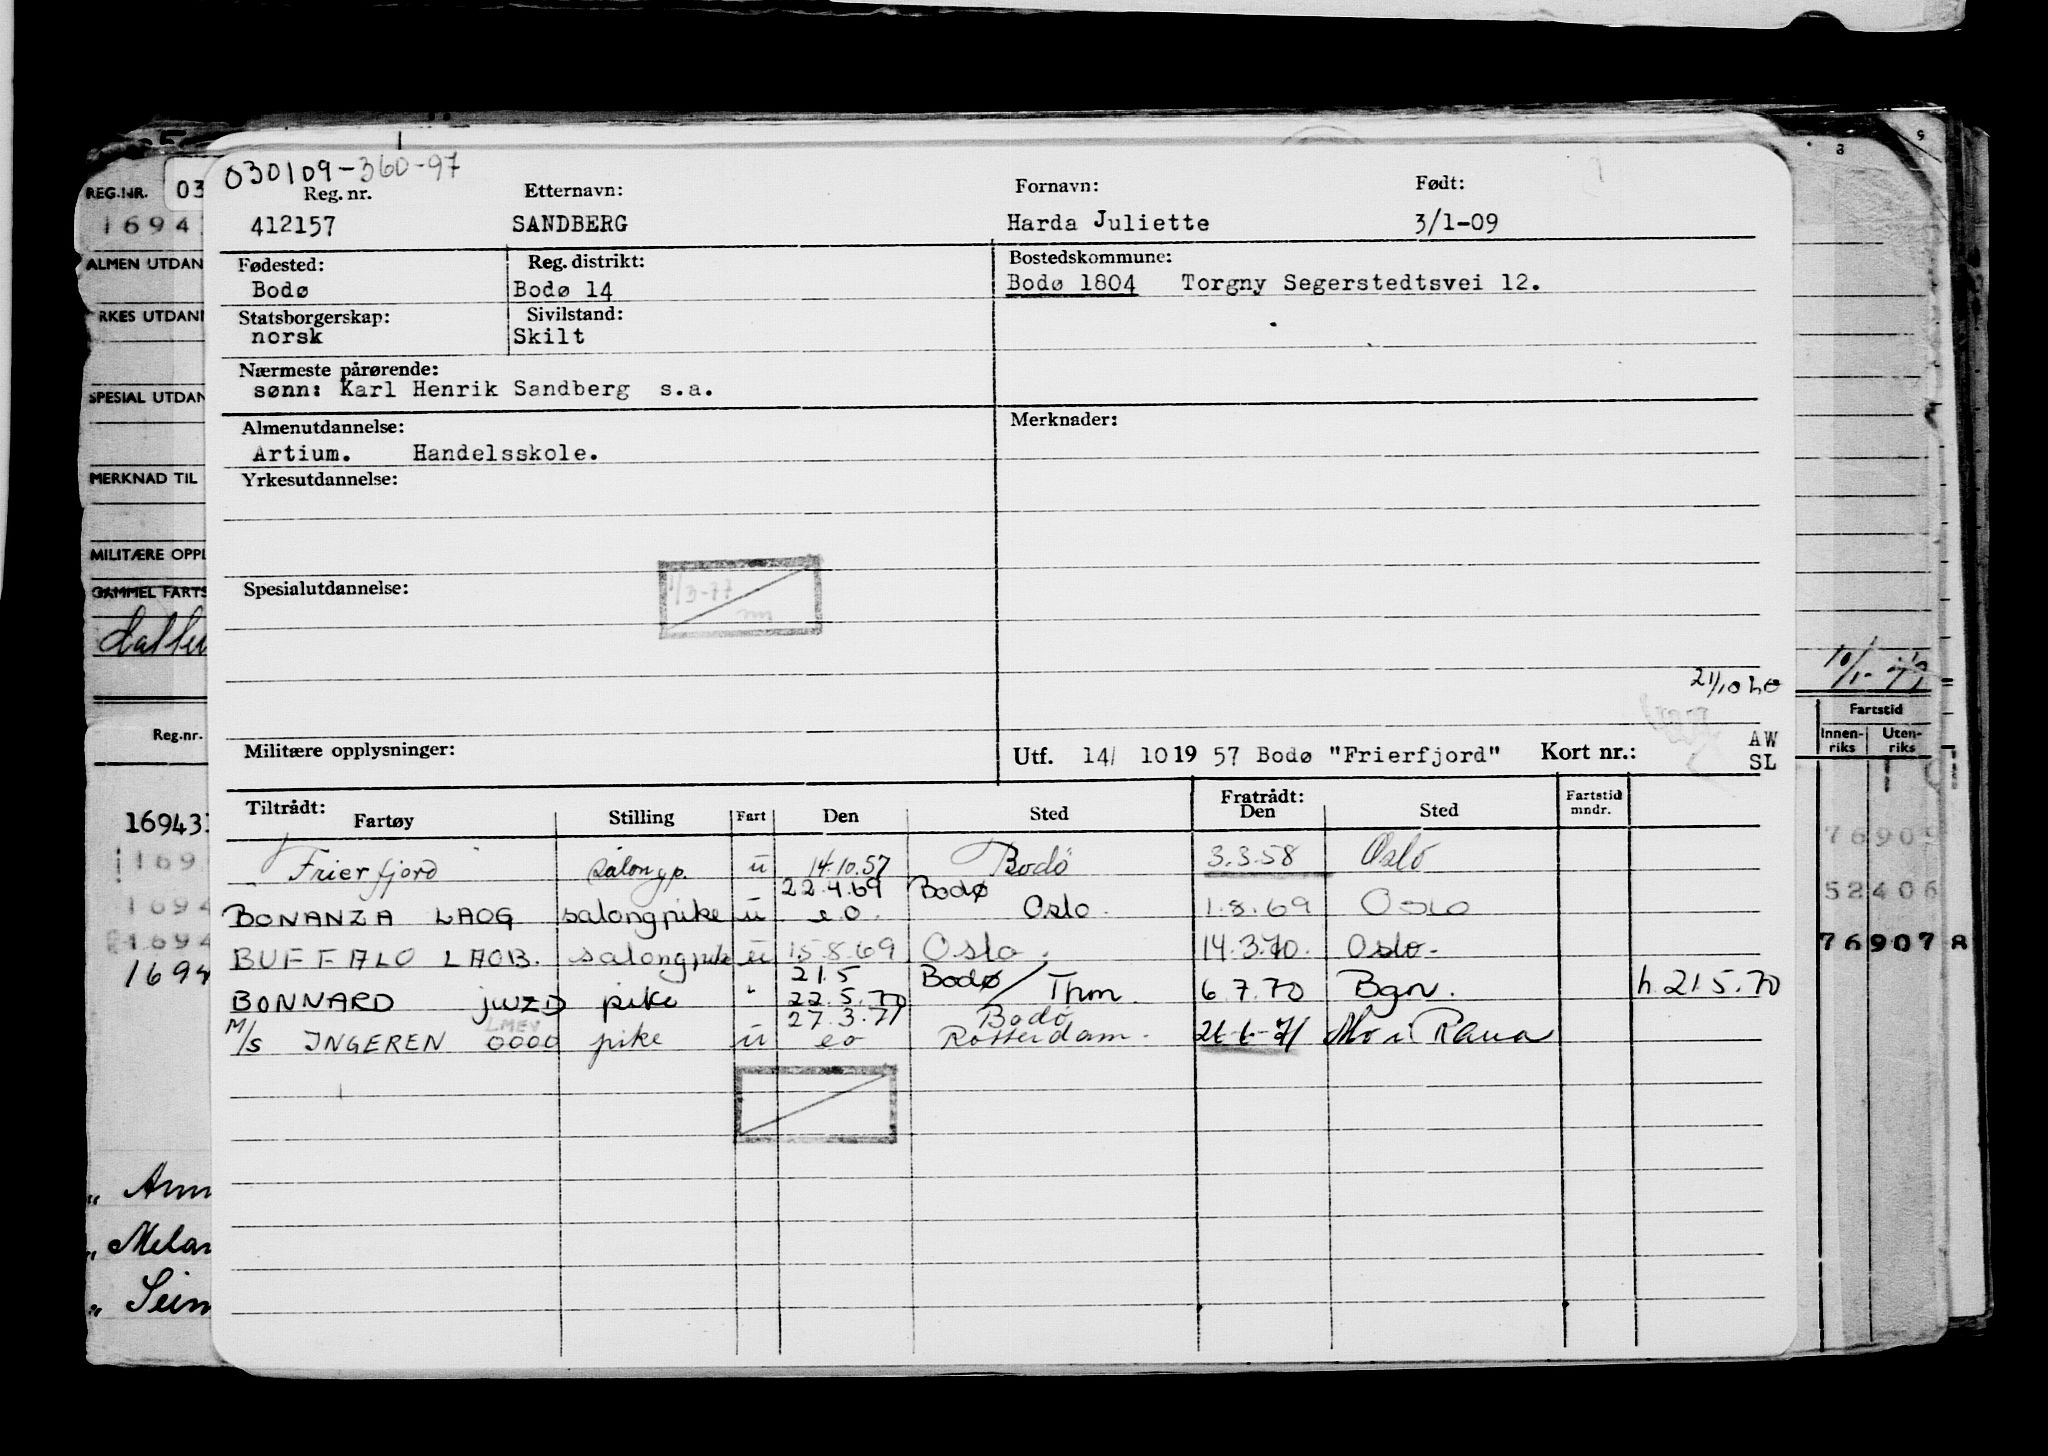 030109-360-97
Reg. nr. Etternavn: Fornavn: Født:
412157 SANDBERG Harda Juliette 3/1-09
Fødested: Reg. distrikt: Bostedskommune:
Bodø Bodø 14 Bodø 1804 Torgny Segerstedtsvei 12.
Statsborgerskap: Sivilstand:
norsk Skilt
Nærmeste pårørende:
sønn: Karl Henrik Sandberg s.a.
Almenutdannelse: Merknader:
Artium. Handelsskole.
Yrkesutdannelse:
1/3-77
Spesialutdannelse:
21/10
Militære opplysninger: Utf. 14/ 10 19 57 Bodø "Frierfjord" Kort nr.: AW
SL
Tiltrådt: Fratrådt:
Fartøy Stilling Fart Den Sted Den Sted Fartstid mndr.
Frierfjord salongp. u 14.10.57 Bodø 3.3.58 Oslo
22.4.69 Bodø
BONANZA LAOG salongpike u eo. Oslo. 1.8.69 Oslo
BUFFALO LAOB. salongpike u 15.8.69 Oslo. 14.3.70. Oslo.
21.5 Bodø/
BONNARD JWZD pike " 22.5.70 Thm. 6.7.70 Bgn. h. 21.5.70
27.3.71 Bodø
LMEV
M/S INGEREN 0000 pike u eo Rotterdam. Mo i Rana
REG.NR. 03
1694
ALMEN UTDAN
RKES UTDAN
SPESIAL UTDAN
MERKNAD TIL
MILITÆRE OPPL
GAMMEL FARTS
Reg.nr.
16943
169
1694
1694
1694
„ Ann
„ Melan
„ Sein
Fartstid
Innen-riks Uten-riks
76909
52406
769078